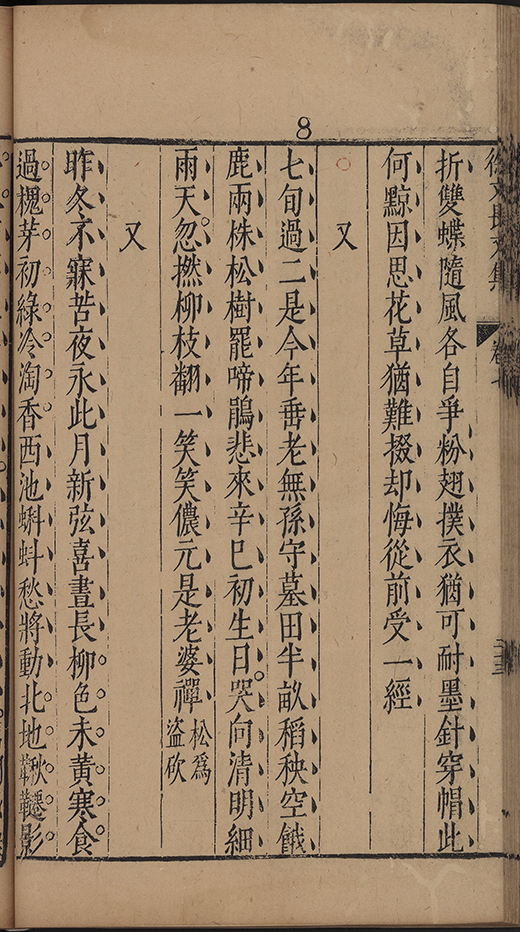 8
徐文長文集 卷七
折雙蝶隨風各自爭粉翅撲衣猶可耐墨針穿帽此
何黥因思花草猶難掇却悔從前受一經
又
七旬過二是今年垂老無孫守墓田半畝稻秧空餓
鹿兩株松樹罷啼鵑悲來辛巳初生日哭向清明細
雨天忽撚柳枝翻一笑笑儂元是老婆禪松為
盜砍
又
昨冬不寐苦夜永此月新弦喜晝長柳色未黃寒食
過槐芽初綠冷淘香西池蝌蚪愁將動北地鞦韆影